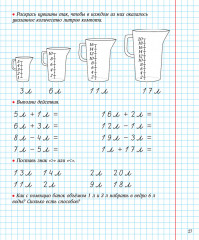 • Раскрась кувшины так, чтобы в каждом из них оказалось
указанное количество литров компота.
3 л 6 л 11 л 17 л
• Выполни действия.
5 л + 1 л = 16 л + 2 л =
6 л + 3 л = 12 л + 1 л =
8 л - 4 л = 18 л - 3 л =
7 л - 5 л = 19 л - 1 л =
• Поставь знак «>» или «<».
13 л 14 л 2 л 20 л
11 л 2 л 9 л 18 л
• Как с помощью банок объёмом 1 л и 2 л набрать в ведро 6 л
воды? Сколько есть способов?
27